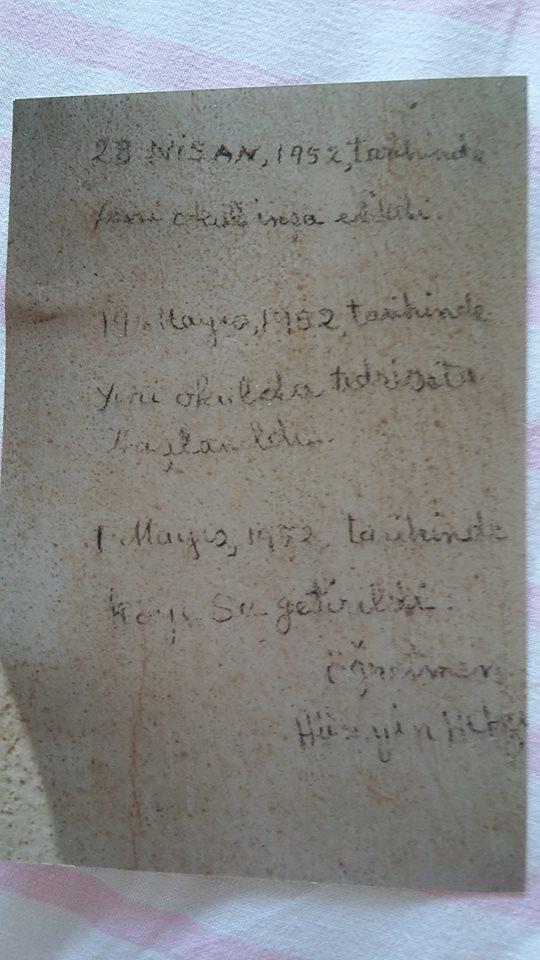 28 NİSAN, 1952, tarihinde
Yeni okul inşa edildi.
19 Mayıs, 1952, tarihinde
Yeni okulda tedrisata
başlanıldı.
1 Mayıs, 1952 tarihinde
su getirildi.
öğretmen
Hüseyin